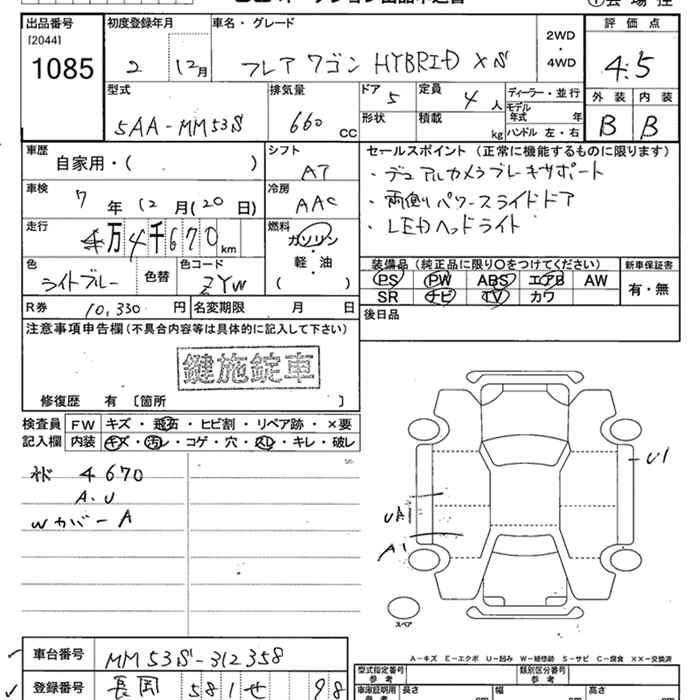 出品番号 初度登録年月 車名・グレード 2WD・4WD 評価点
[2044]
1085 2 12月 フレアワゴン HYBRID XS 4.5
型式 排気量 ドア 5 定員 4人 ディーラー・並行 外装 内装
5AA-MM53S 660 CC 形状 積載 kg モデル年式 年 ハンドル 左・右 B B
車歴 自家用・( ) シフト AT セールスポイント (正常に機能するものに限ります)
・デュアルカメラブレーキサポート
車検 7年12月(20日) 冷房 AAC ・両側パワースライドドア
走行 4万4千670km 燃料 ガソリン・軽・油 ( ) ・LEDヘッドライト
色 ライトブルー 色替 色コード ZYW
装備品 (純正品に限り○をつけてください) 新車保証書
PS PW ABS エアB AW 有・無
SR ナビ TV カワ
R券 10,330円 名変期限 月 日 後日品
注意事項申告欄(不具合内容等は具体的に記入して下さい)
鍵施錠車
修復歴 有 〔箇所 〕
検査員 FW キズ・飛石・ヒビ割・リペア跡・×要
記入欄 内装 キズ・汚レ・コゲ・穴・スレ・キレ・破レ
4670
A.U
Wカバー A
U1
UA1
A1
スペア
A-キズ E-エクボ U-凹み W-補修跡 S-サビ C-腐食 ××-交換済
車台番号 MM53S-312358
登録番号 長岡 581 せ 98
型式指定番号 参考 類別区分番号 参考
車庫証明用 参考 長さ cm 幅 cm 高さ cm